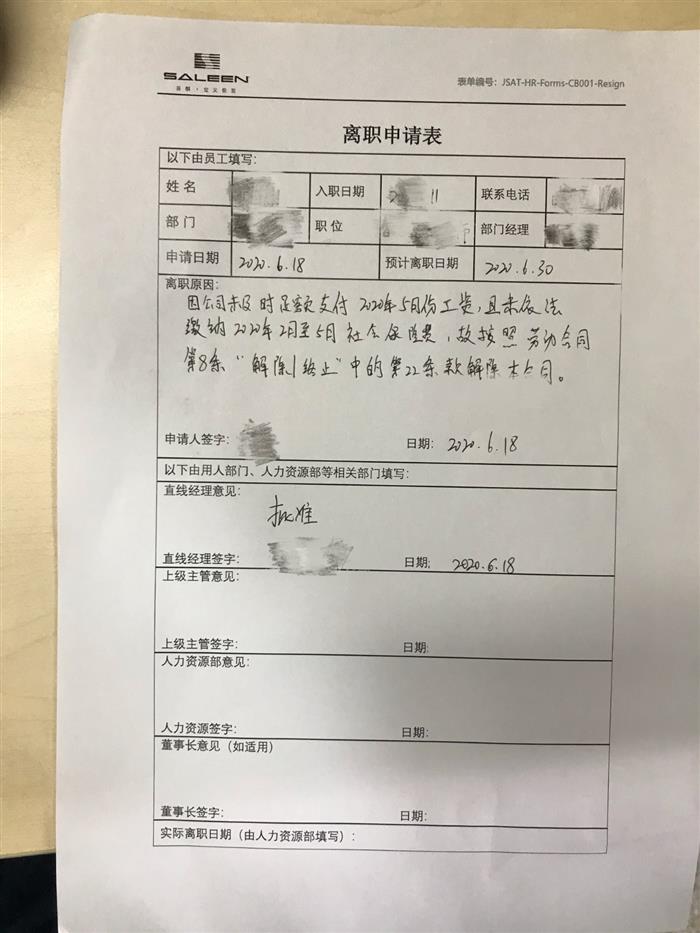 SALEEN
表单编号：JSAT-HR-Forms-CB001-Resign
离职申请表
以下由员工填写：
姓 名 入职日期 11 联系电话
部 门 职 位 部门经理
申请日期 2020.6.18 预计离职日期 2020.6.30
离职原因：
因公司未及时足额支付 2020年5月份工资，且未依法
缴纳2020年2月至5月社会保险费，故按照劳动合同
第8条“解除/终止”中的第22条款解除本公司。
申请人签字： 日期：2020.6.18
以下由用人部门、人力资源部等相关部门填写：
直线经理意见：
批准
直线经理签字： 日期：2020.6.18
上级主管意见：
上级主管签字： 日期：
人力资源部意见：
人力资源签字： 日期：
董事长意见（如适用）
董事长签字： 日期：
实际离职日期（由人力资源部填写）：